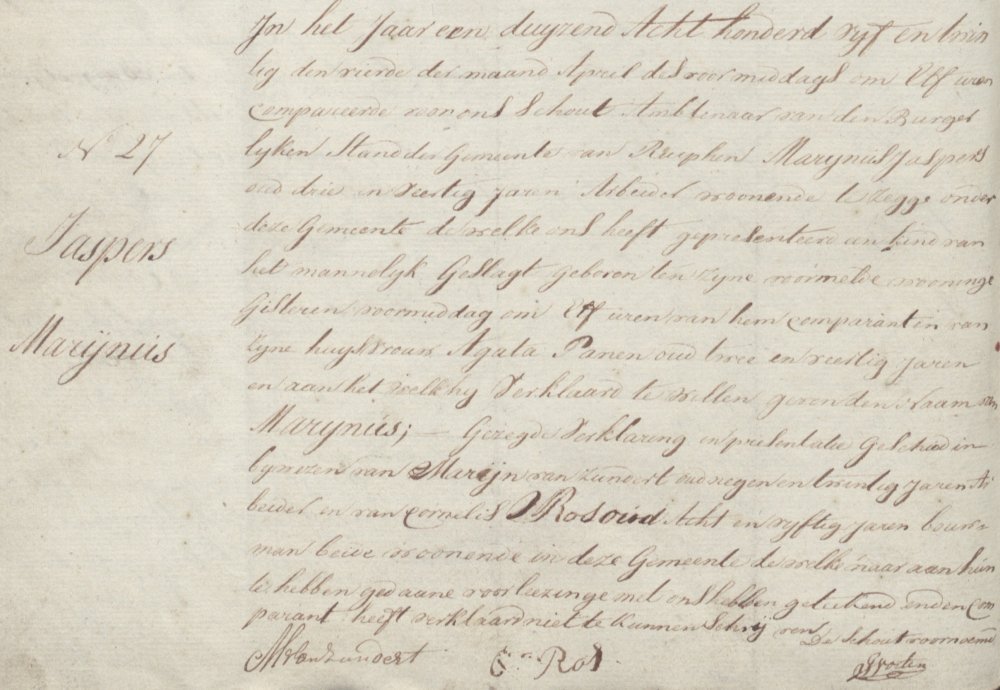 In het Jaar een duyzend Acht honderd vyf en twin
tig den vierde der maand April des voormiddags om Elf uren
compareerde voor ons Schout Ambtenaar van den Burger
N 27
lyken Stand der Gemeente van Rucphen Marynus Jaspers
oud drie en veertig jaren Arbeider woonende te Zegge onder
Jaspers
deze Gemeente de welke ons heeft gepresenteerd een kind van
het mannelyk Geslagt geboren ten zyne voormelde wooninge
Gisteren voormiddag om Elf uren van hem comparant en van
Marijnus
zyne huysvrouw Agata Panen oud twee en veertig jaren
en aan het welk hy Verklaard te willen geven den Naam van
Marynus; — Gezegde Verklaring en presentatie Geschied in
bywezen van Marijn van Zundert oud negen en twintig jaren Ar
beider en van Cornelis Ros oud Acht en vyftig jaren bouw
man beide woonende in deze Gemeente de welke naar aan hun
te hebben gedaane voorleezinge met ons hebben geteekend en den Com
parant heeft verklaard niet te kunnen Schryven
De Schout voornoemd
MVan Zundert
Cn Ros